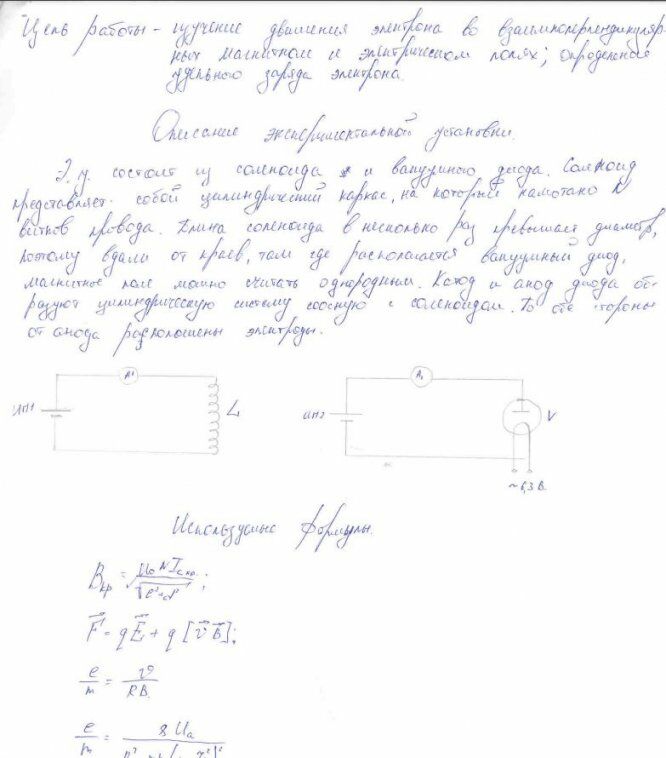 Цель работы - изучение движения электрона во взаимноперпендикуляр-
ных магнитном и электрическом полях; определение
удельного заряда электрона.
Описание экспериментальной установки.
Э.у. состоит из соленоида и вакуумного диода. Соленоид
представляет собой цилиндрический каркас, на который намотано N
витков провода. Длина соленоида в несколько раз превышает диаметр,
поэтому вдали от краев, там где располагается вакуумный диод,
магнитное поле можно считать однородным. Катод и анод диода об-
разуют цилиндрическую систему соосную с соленоидом. По обе стороны
от анода расположены электроды.
A1
ИП1
L
A2
ИП2
V
~6,3 В
Используемые формулы.
Bкр = μ0 N Iс кр / √(l²+d²);
F⃗ = qE⃗ + q[v⃗B⃗];
e/m = v/RB.
e/m = 8 Ua